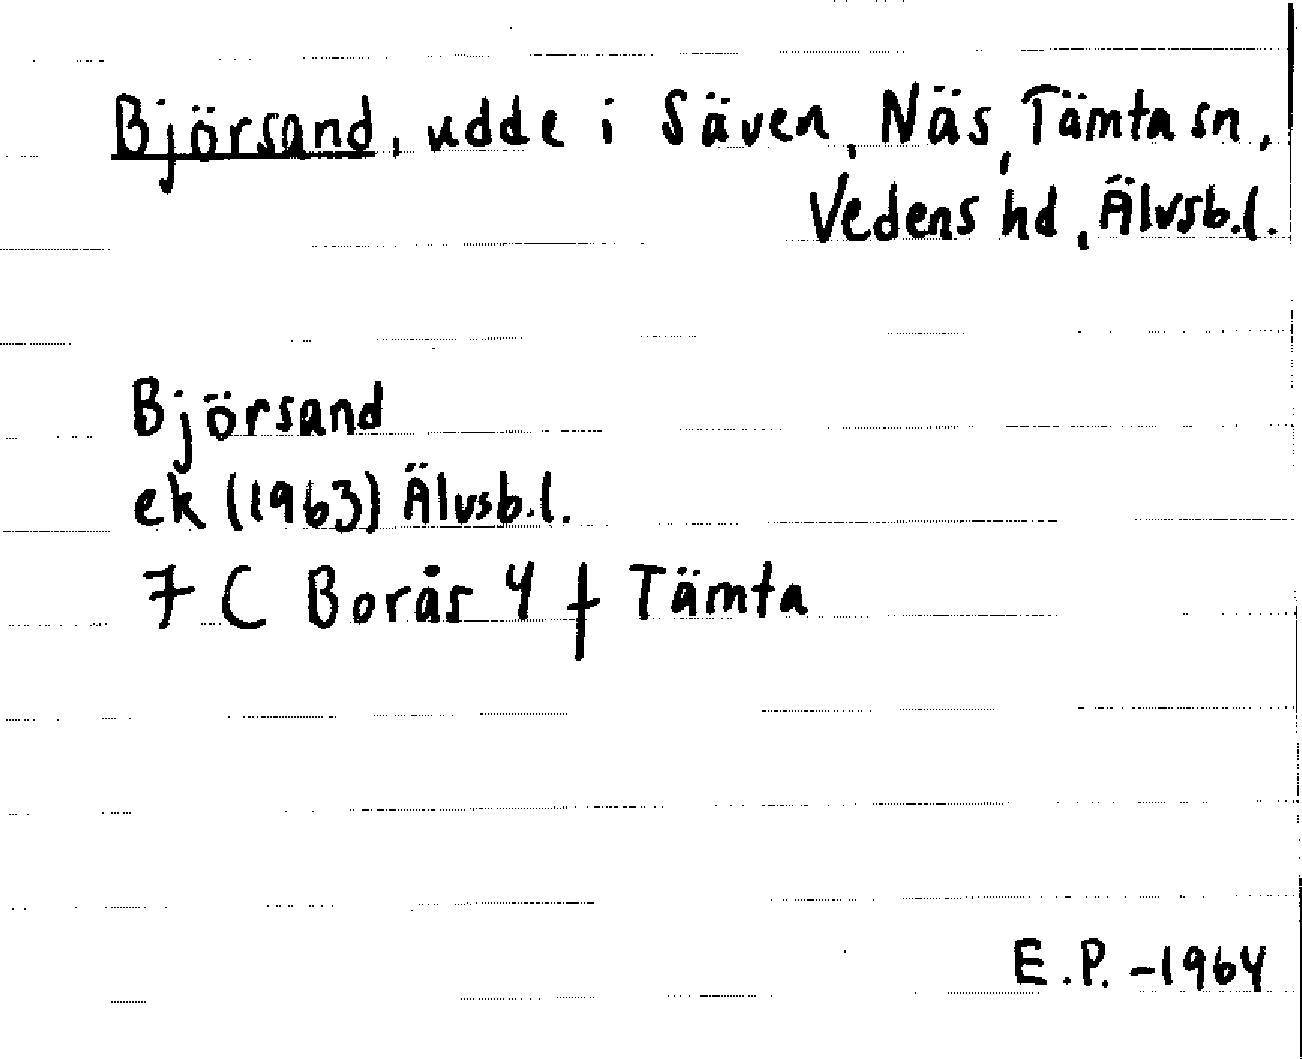 Björsand, udde i Säven, Näs, Tämta sn,
Vedens hd, Älvsb.l.
Björsand
ek (1963) Älvsb.l.
7 C Borås 4 f Tämta
E.P. -1964